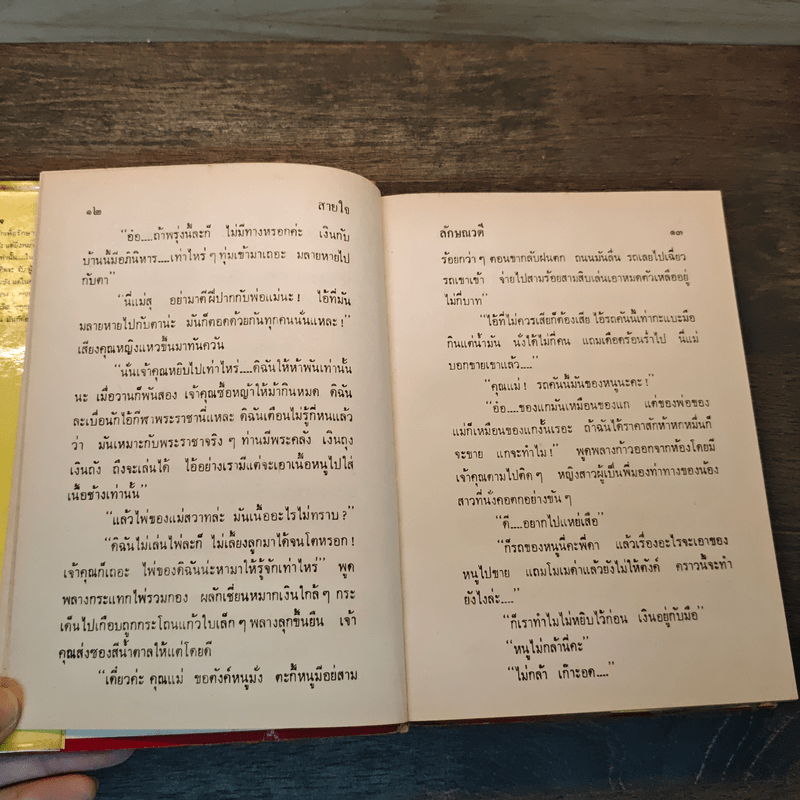 ๑๒ สายใจ
“อ๋อ....ถ้าพรุ่งนี้ละก็ ไม่มีทางหรอกค่ะ เงินกับ
บ้านนี้มีอภินิหาร....เท่าไหร่ ๆ ทุ่มเข้ามาเถอะ มลายหายไป
กับตา”
“นี่แม่สุ อย่ามาตีฝีปากกับพ่อแม่นะ ! ไอ้ที่มัน
มลายหายไปกับตาน่ะ มันก็ตอดด้วยกันทุกคนนั่นแหละ !”
เสียงคุณหญิงแหวขึ้นมาทันควัน
“นั่นเจ้าคุณหยิบไปเท่าไหร่....ดิฉันให้ห้าพันเท่านั้น
นะ เมื่อวานก็พันสอง เจ้าคุณซื้อหญ้าให้ม้ากินหมด ดิฉัน
ละเบื่อนักไอ้กีฬาพระราชานี่แหละ ดิฉันเตือนไม่รู้กี่หนแล้ว
ว่า มันเหมาะกับพระราชาจริง ๆ ท่านมีพระคลัง เงินถุง
เงินถัง ถึงจะเล่นได้ ไอ้อย่างเรามีแต่จะเอาเนื้อหนูไปใส่
เนื้อช้างเท่านั้น”
“แล้วไพ่ของแม่สวาทล่ะ มันเนื้ออะไรไม่ทราบ ?”
“ดิฉันไม่เล่นไพ่ละก็ ไม่เลี้ยงลูกมาได้จนโตหรอก !
เจ้าคุณก็เถอะ ไพ่ของดิฉันน่ะหามาให้รู้จักเท่าไหร่” พูด
พลางกระแทกไพ่รวมกอง ผลักเชี่ยนหมากเงินใกล้ ๆ กระ
เด็นไปเกือบถูกกระโถนแก้วใบเล็ก ๆ พลางลุกขึ้นยืน เจ้า
คุณส่งซองสีน้ำตาลให้แต่โดยดี
“เดี๋ยวค่ะ คุณแม่ ขอตังค์หนูมั่ง ตะกี้หนูมีอยู่สาม
ลักษณวดี ๑๓
ร้อยกว่า ๆ ตอนขากลับฝนตก ถนนมันลื่น รถเลยไปเฉี่ยว
รถเขาเข้า จ่ายไปสามร้อยสามสิบเล่นเอาหมดตัวเหลืออยู่
ไม่กี่บาท”
“ไอ้ที่ไม่ควรเสียก็ต้องเสีย ไอ้รถคันนี้เท่ากะแบะมือ
กินแต่น้ำมัน นั่งได้ไม่กี่คน แถมเดือดร้อนร่ำไป นี่แม่
บอกขายเขาแล้ว....”
“คุณแม่ ! รถคันนี้มันของหนูนะคะ !”
“อ๋อ....ของแกมันเหมือนของแก แต่ของพ่อของ
แม่ก็เหมือนของแกงั้นเรอะ ถ้าฉันได้ราคาสักห้าหกหมื่นก็
จะขาย แกจะทำไม !” พูดพลางก้าวออกจากห้องโดยมี
เจ้าคุณตามไปติด ๆ หญิงสาวผู้เป็นพี่มองท่าทางของน้อง
สาวที่นั่งคอตกอย่างขัน ๆ
“ดี....อยากไปแหย่เสือ”
“ก็รถของหนูนี่คะพี่ดา แล้วเรื่องอะไรจะเอาของ
หนูไปขาย แถมโมเมด่าแล้วยังไม่ให้ตังค์ คราวนี้จะทำ
ยังไงล่ะ....”
“ก็เราทำไมไม่หยิบไว้ก่อน เงินอยู่กับมือ”
“หนูไม่กล้านี่คะ”
“ไม่กล้า ก๊อะอด....”